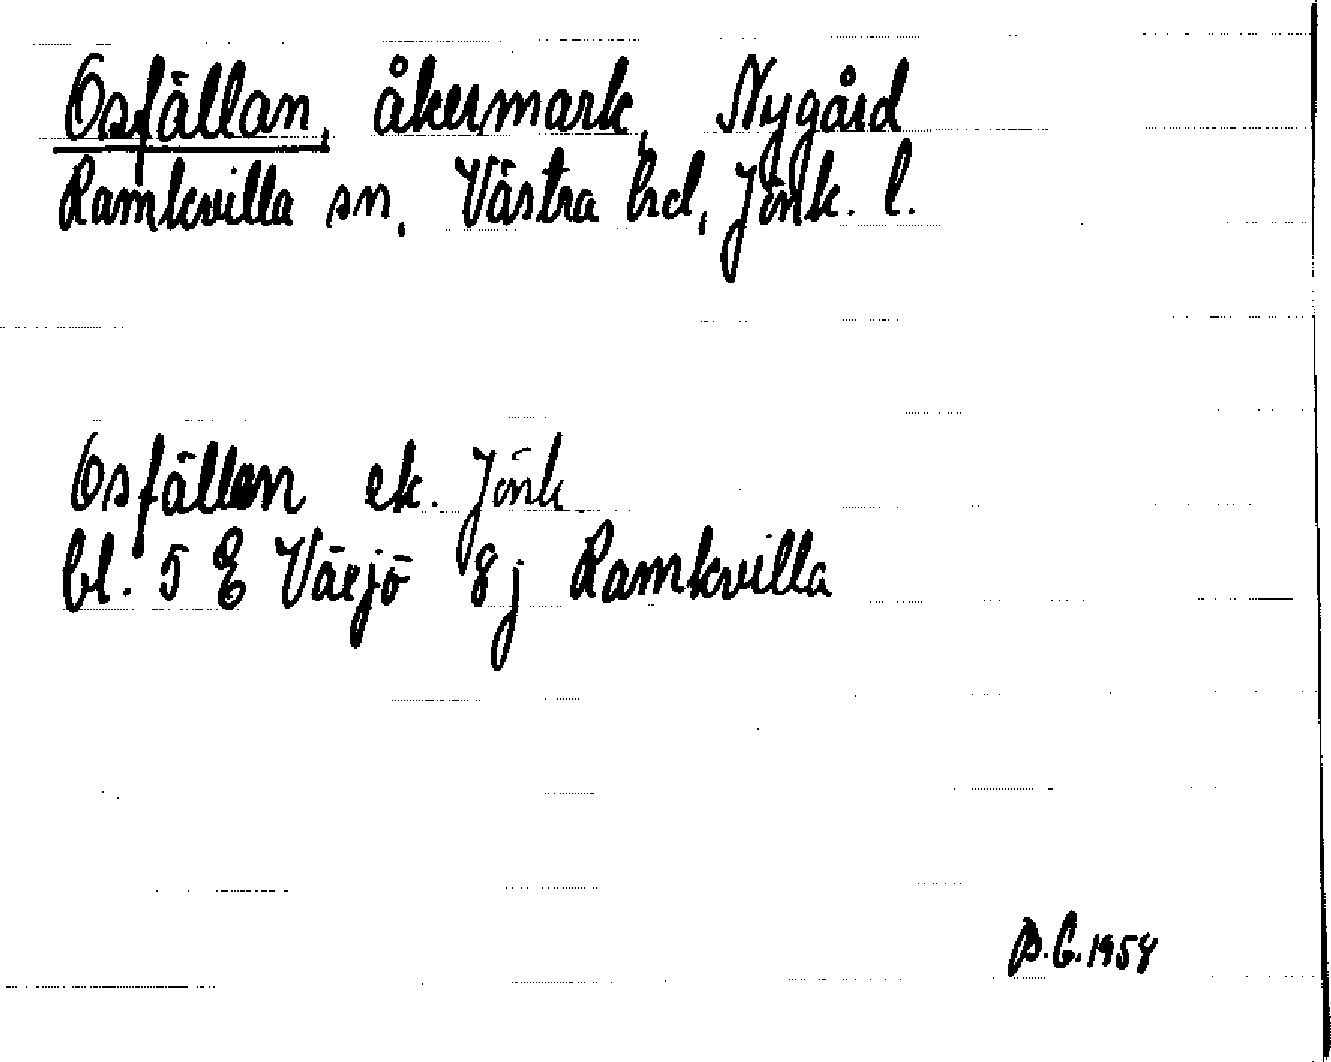 Osfällan, åkermark, Nygård
Ramkvilla sn, Västra hd, Jönk. l.
Osfällan ek. Jönk
bl. 5 E Växjö 8j Ramkvilla
B.G. 1958